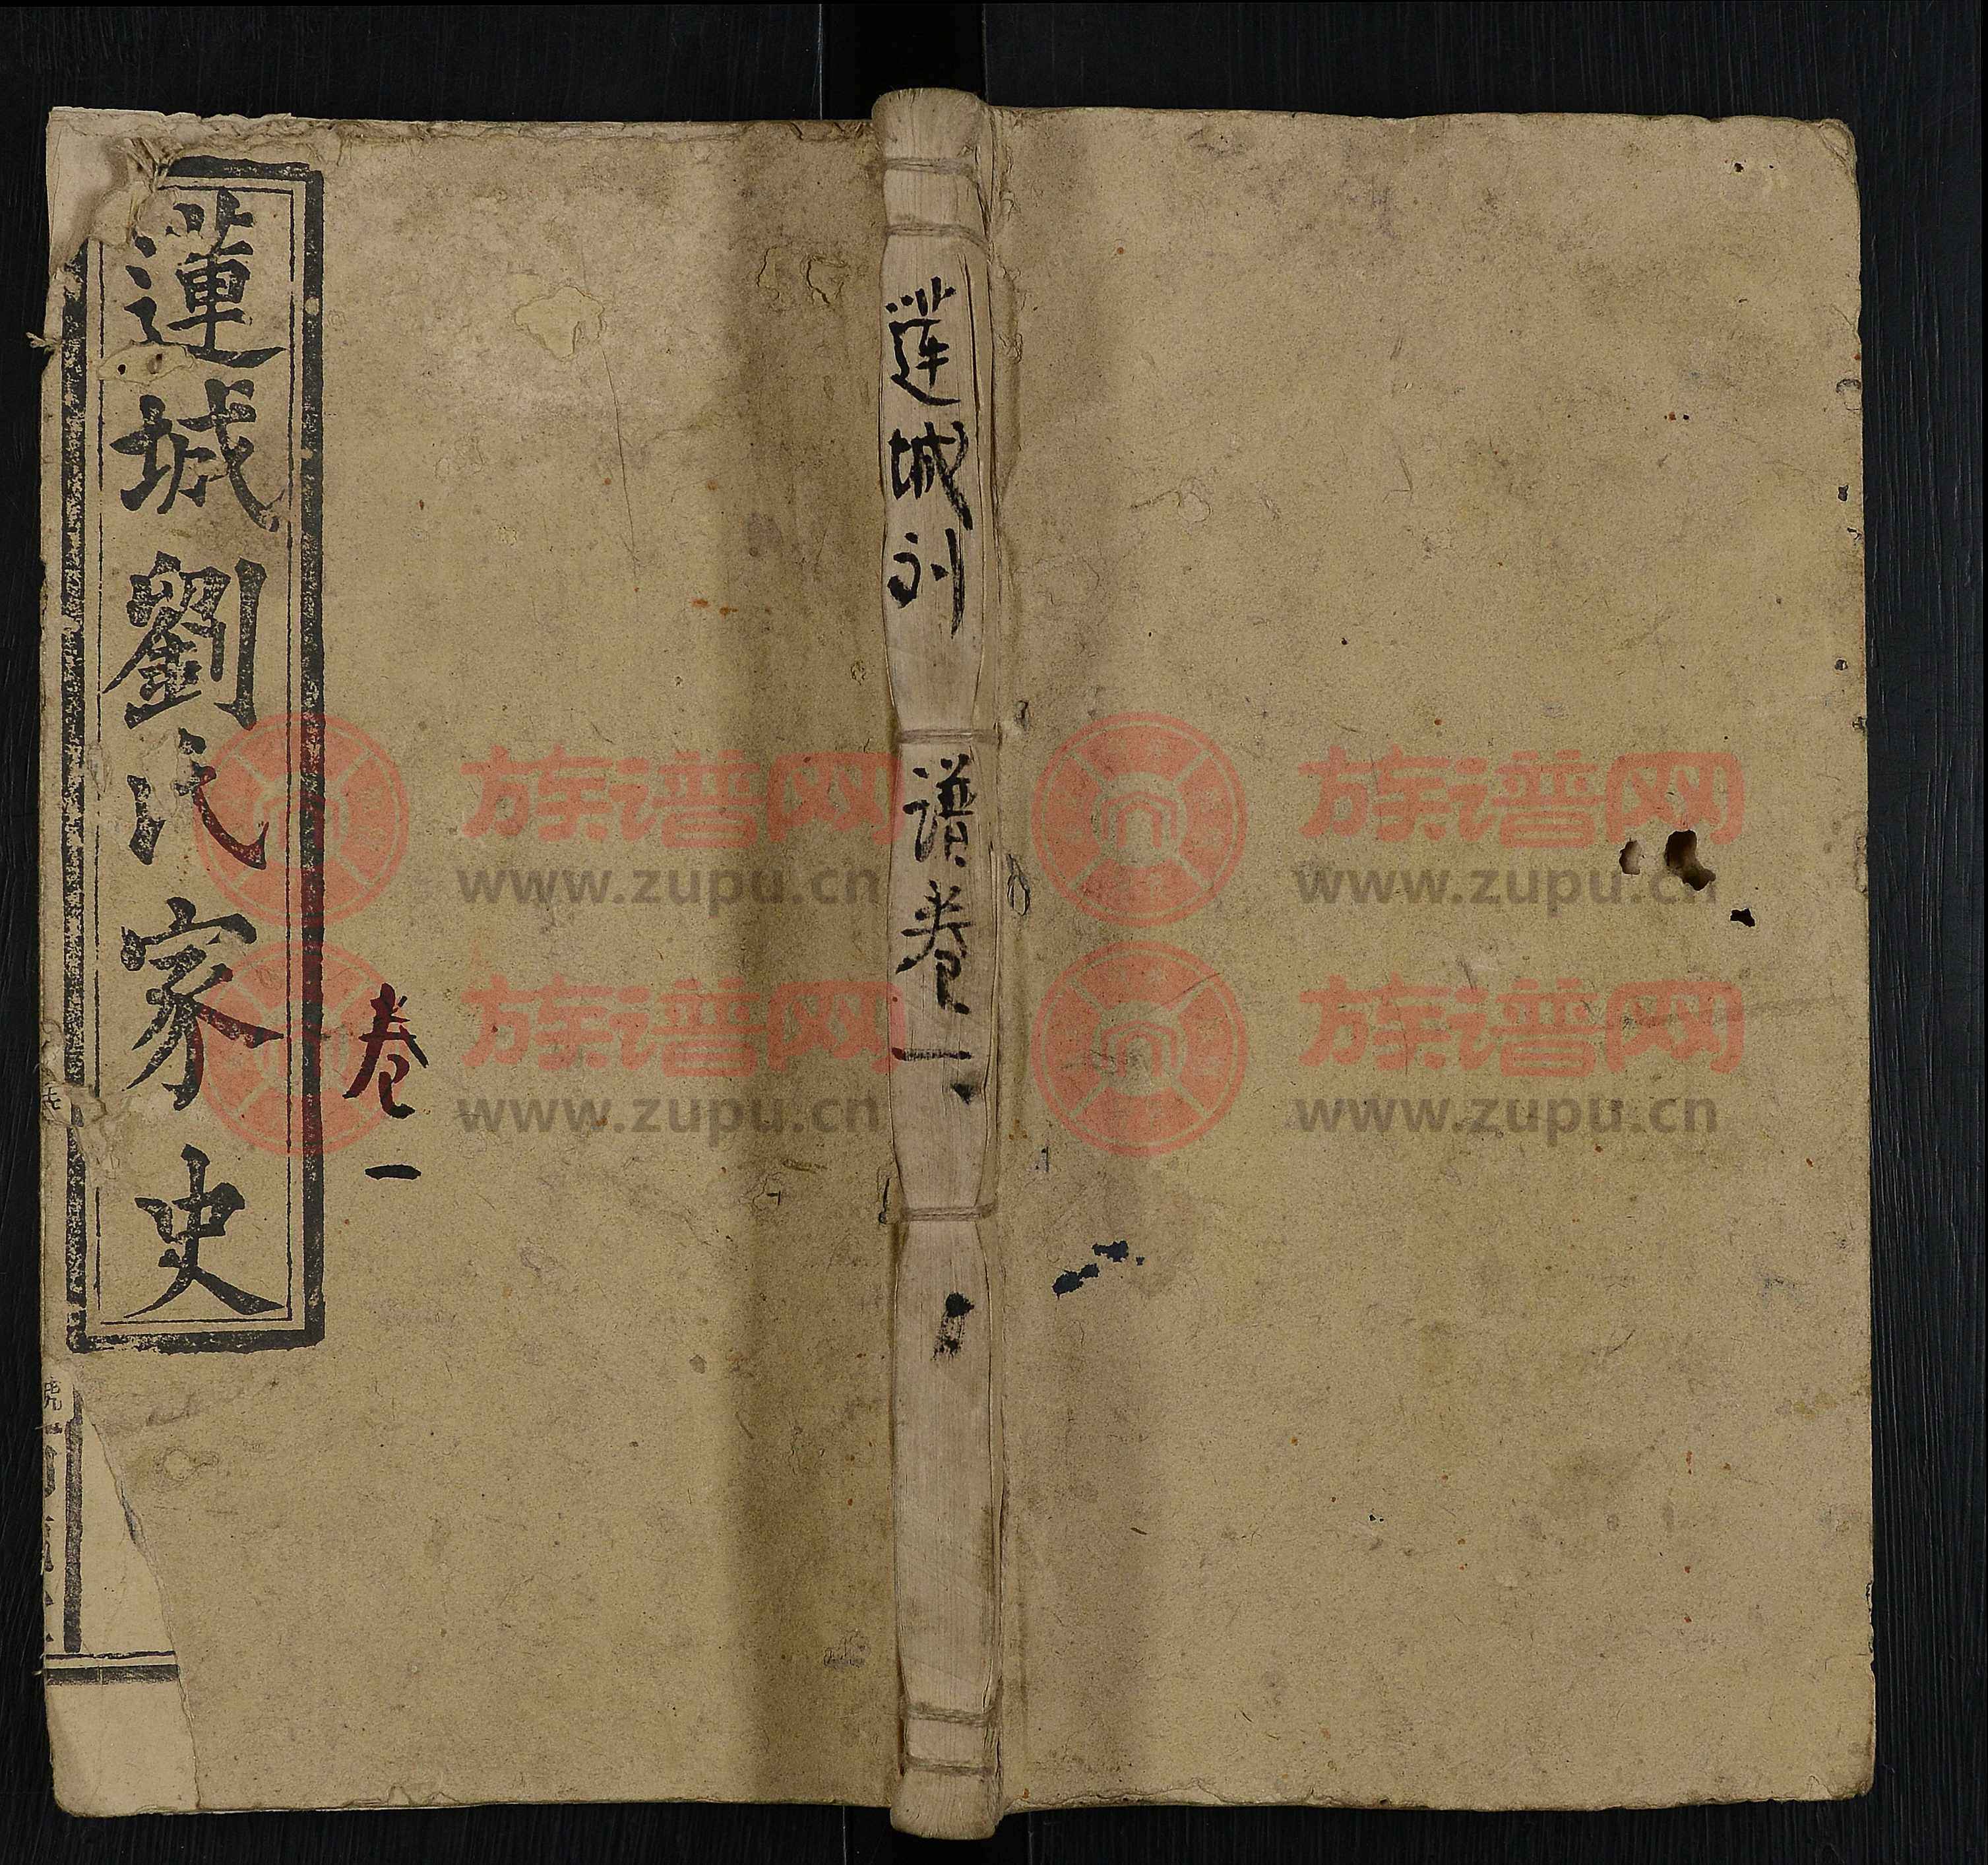 蓮城劉氏家史
卷一
莲城刘
谱卷一
族谱网
www.zupu.cn
族谱网
www.zupu.cn
族谱网
www.zupu.cn
族谱网
www.zupu.cn